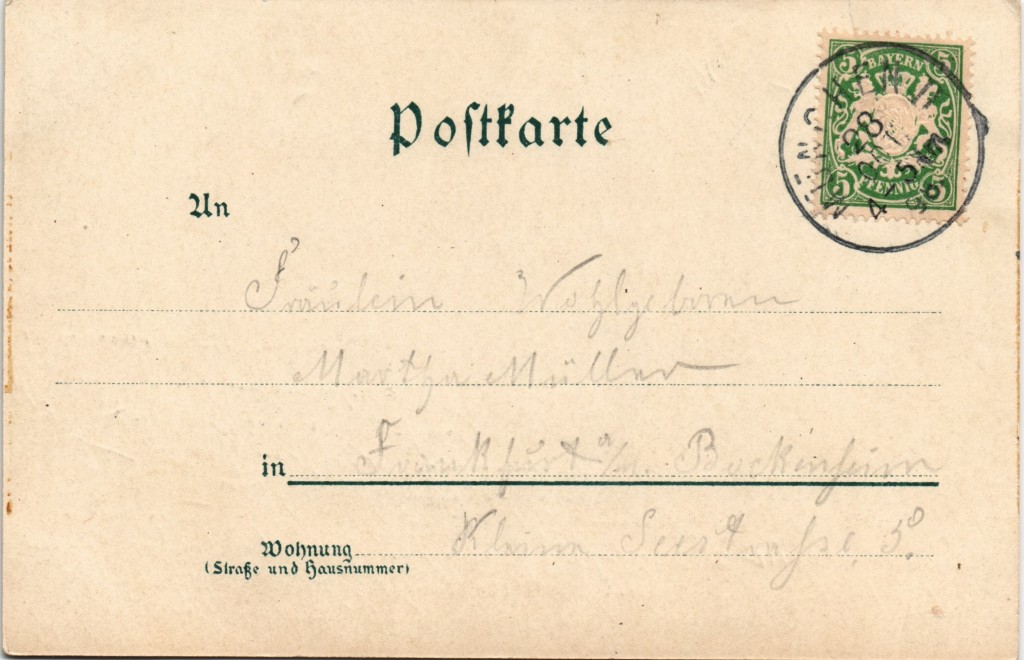 Postkarte
5 BAYERN 5
5 PFENNIG 5
MUENCHEN
28
4-5
98
An
Fräulein Wohlgeboren
Martha Müller
in Frankfurt a/M. Bockenheim
Wohnung Kleine Seestrasse 5.
(Straße und Hausnummer)